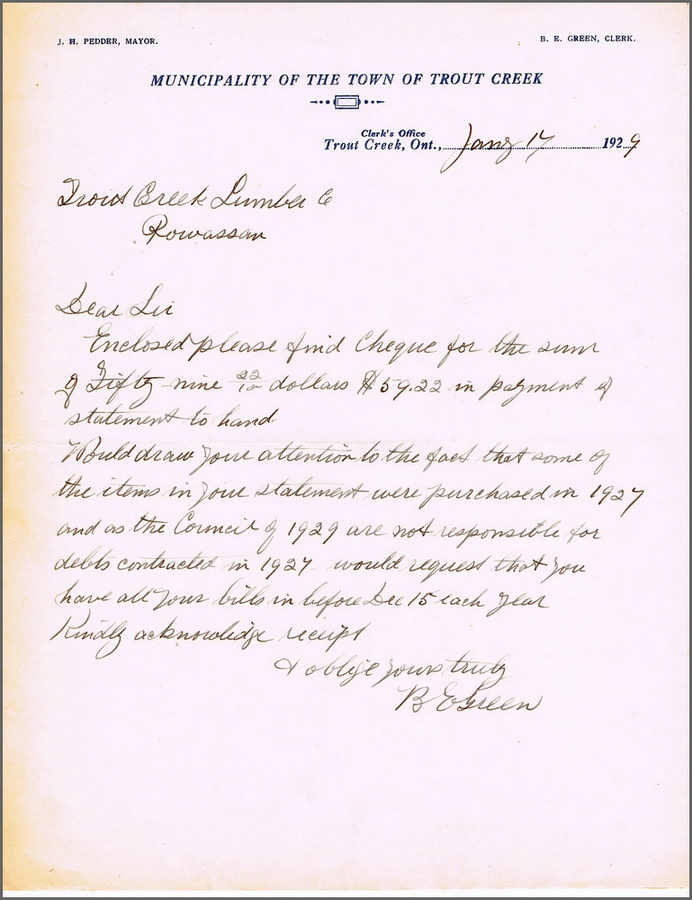 J. H. PEDDER, MAYOR.
B. E. GREEN, CLERK.
MUNICIPALITY OF THE TOWN OF TROUT CREEK
Clerk's Office
Trout Creek, Ont., Jany 17 1929
Trout Creek Lumber Co
Powassan
Dear Sir
Enclosed please find Cheque for the sum
of Fifty-nine 22/100 dollars $59.22 in payment of
statement to hand
Would draw your attention to the fact that some of
the items in your statement were purchased in 1927
and as the Council of 1929 are not responsible for
debts contracted in 1927 would request that you
have all your bills in before Dec 15 each year
Kindly acknowledge receipt
& oblige yours truly
B E Green